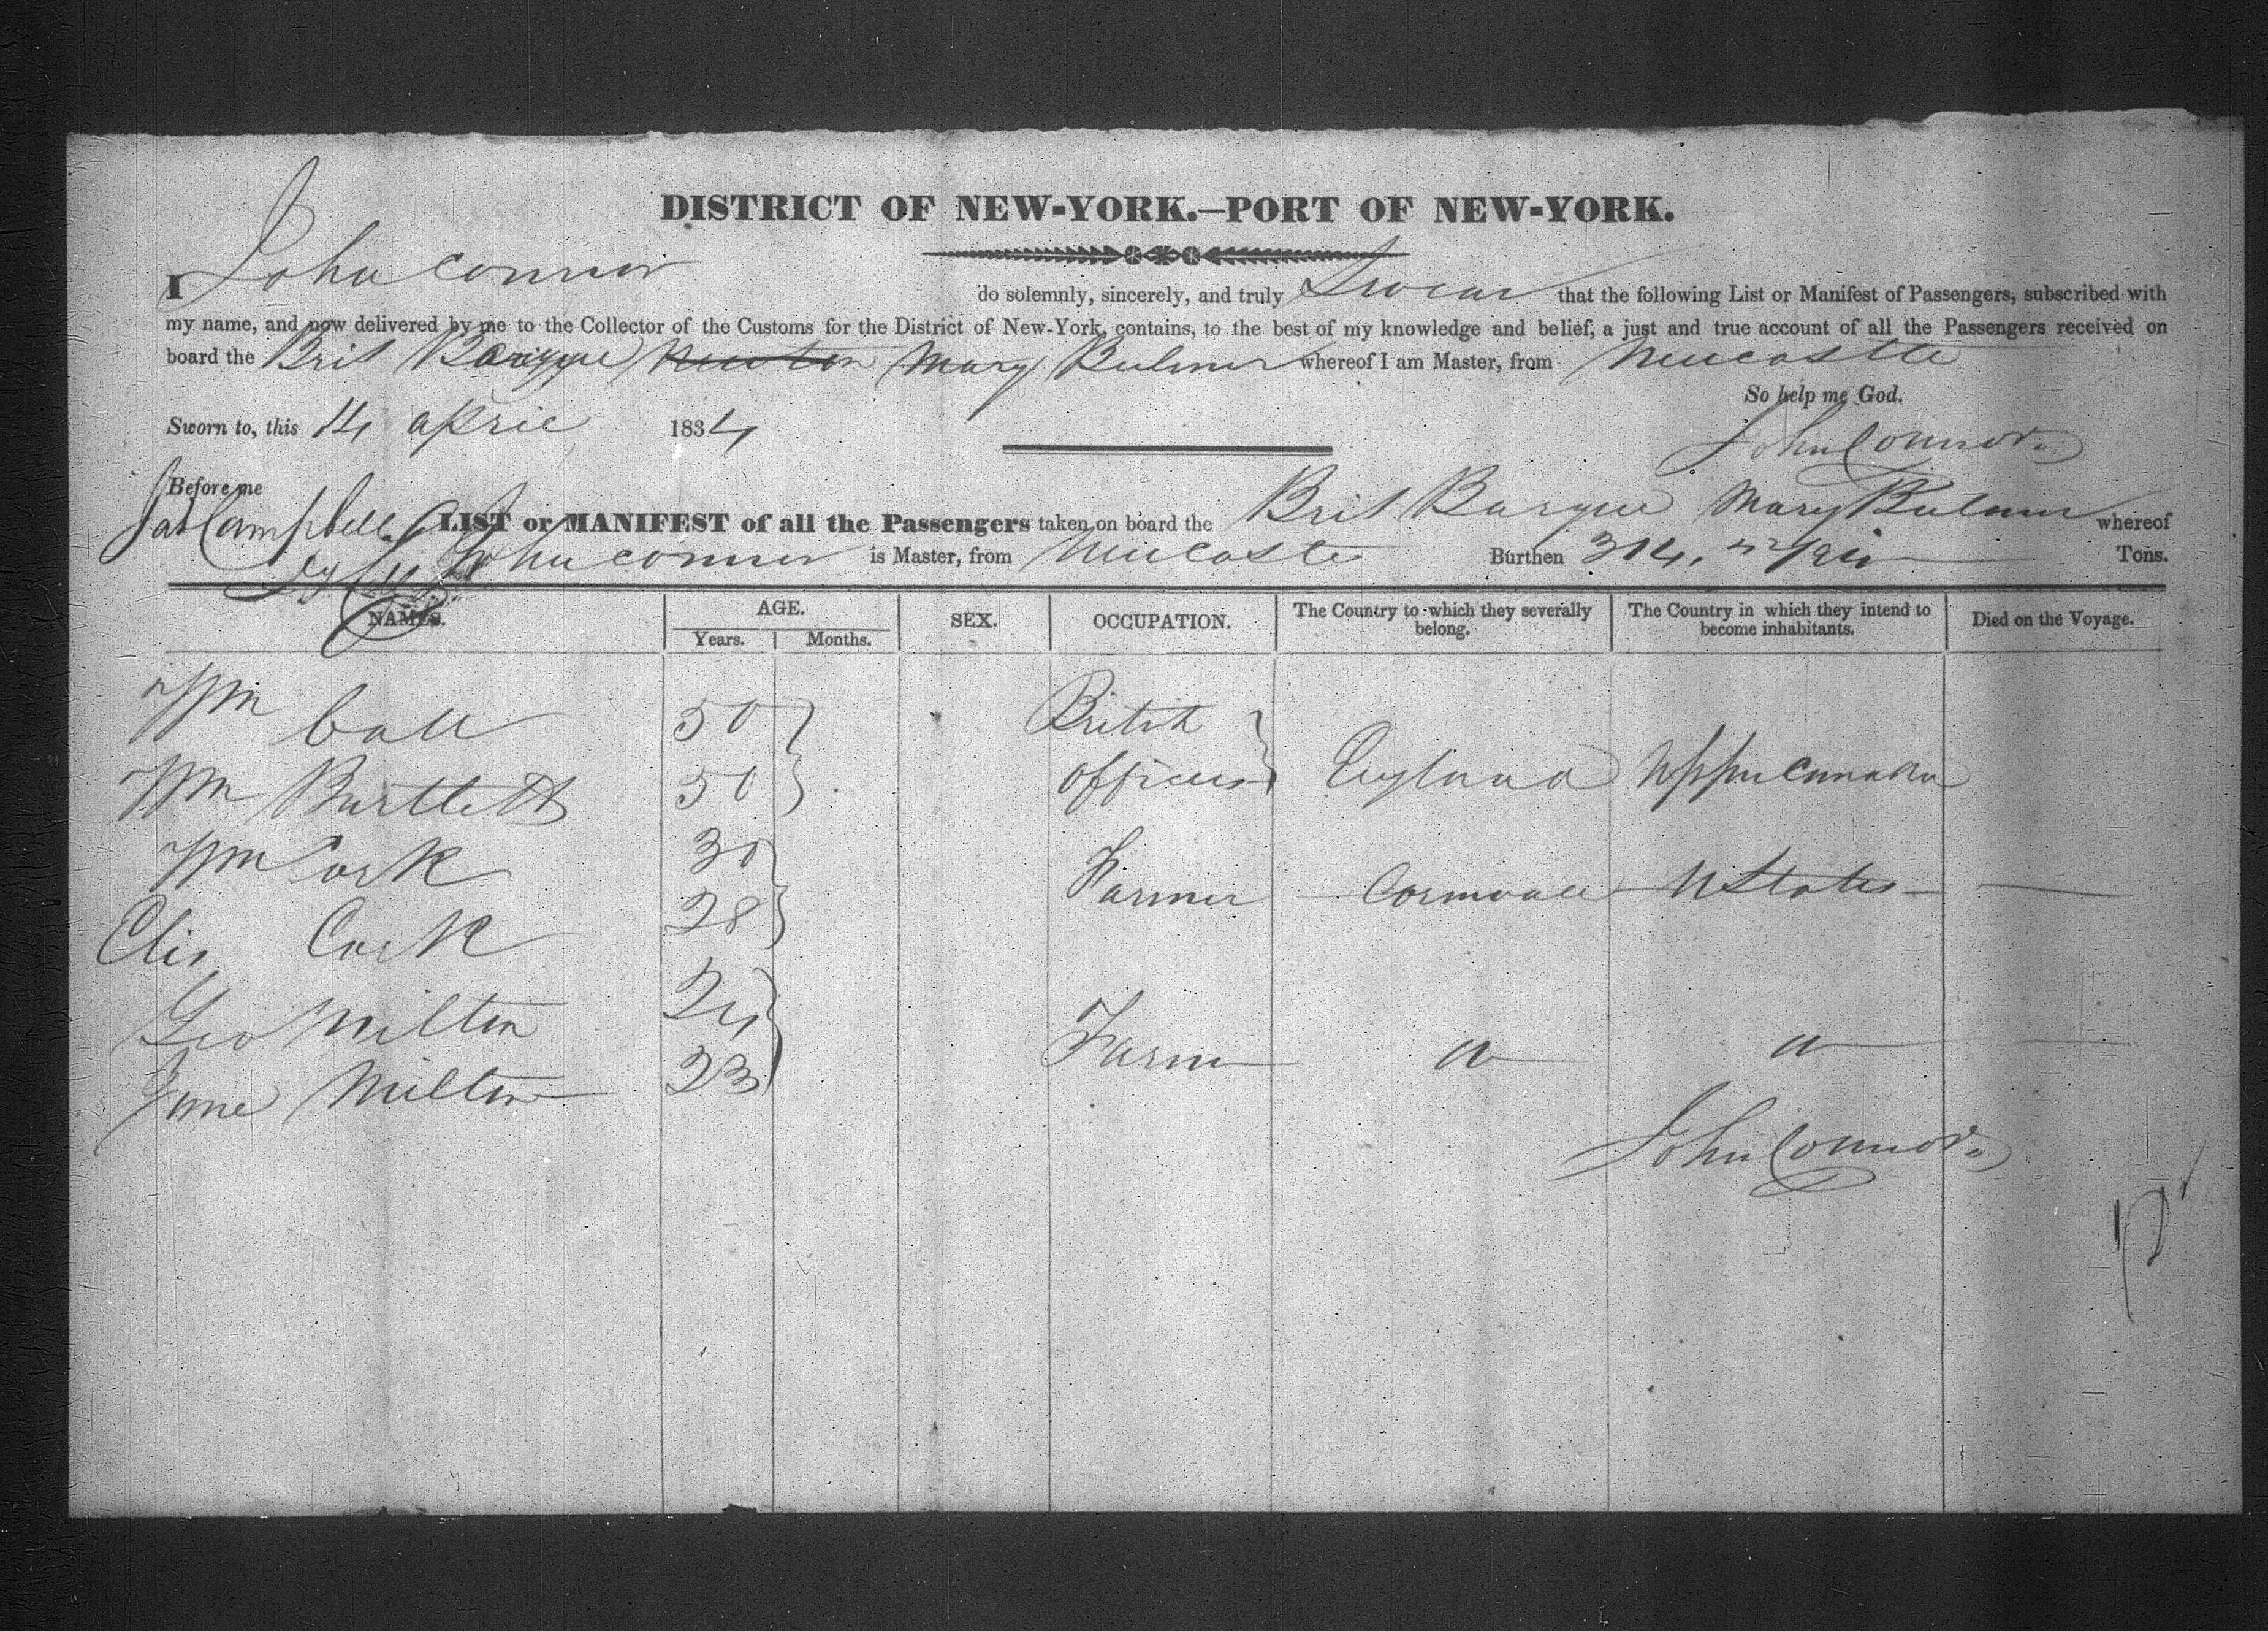 DISTRICT OF NEW-YORK.—PORT OF NEW-YORK.
I John Connor do solemnly, sincerely, and truly Swear that the following List or Manifest of Passengers, subscribed with
my name, and now delivered by me to the Collector of the Customs for the District of New-York, contains, to the best of my knowledge and belief, a just and true account of all the Passengers received on
board the Brit Barque Newton Mary Bulmer whereof I am Master, from Newcastle
So help me God.
Sworn to, this 14 April 1834
John Connor
Before me
Jas Campbell
LIST or MANIFEST of all the Passengers taken on board the Brit Barque Mary Bulmer whereof
John Connor is Master, from Newcastle Burthen 314 Tons.
NAMES. AGE. SEX. OCCUPATION. The Country to which they severally belong. The Country in which they intend to become inhabitants. Died on the Voyage.
Years. Months.
Wm 50 British
Wm Bartlett 50 Officers England Upper Canada
Wm Cork 30 Farmer Cornwall U States
Elis Cork 28
Geo Milton 24 Farm
Jane Milton 23
John Connor